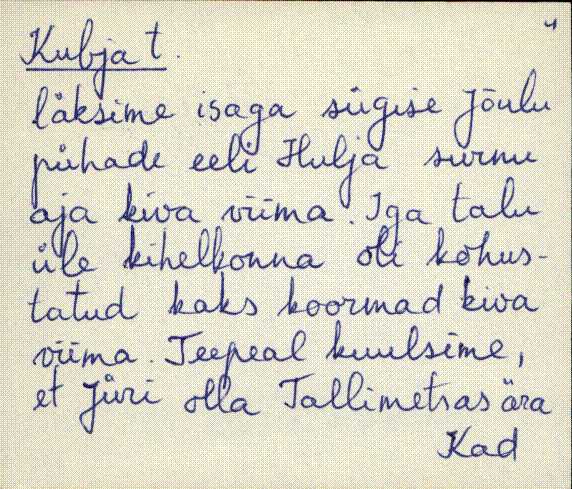 4
Kubja t.
läksime isaga sügise Jõulu
pühade eeli Hulja surnu
aja kiva viima. Iga talu
üle kihelkonna oli kohus-
tatud kaks koormad kiva
viima. Teepeal kuulsime,
et Jüri olla Tallimetsas ära
Kad